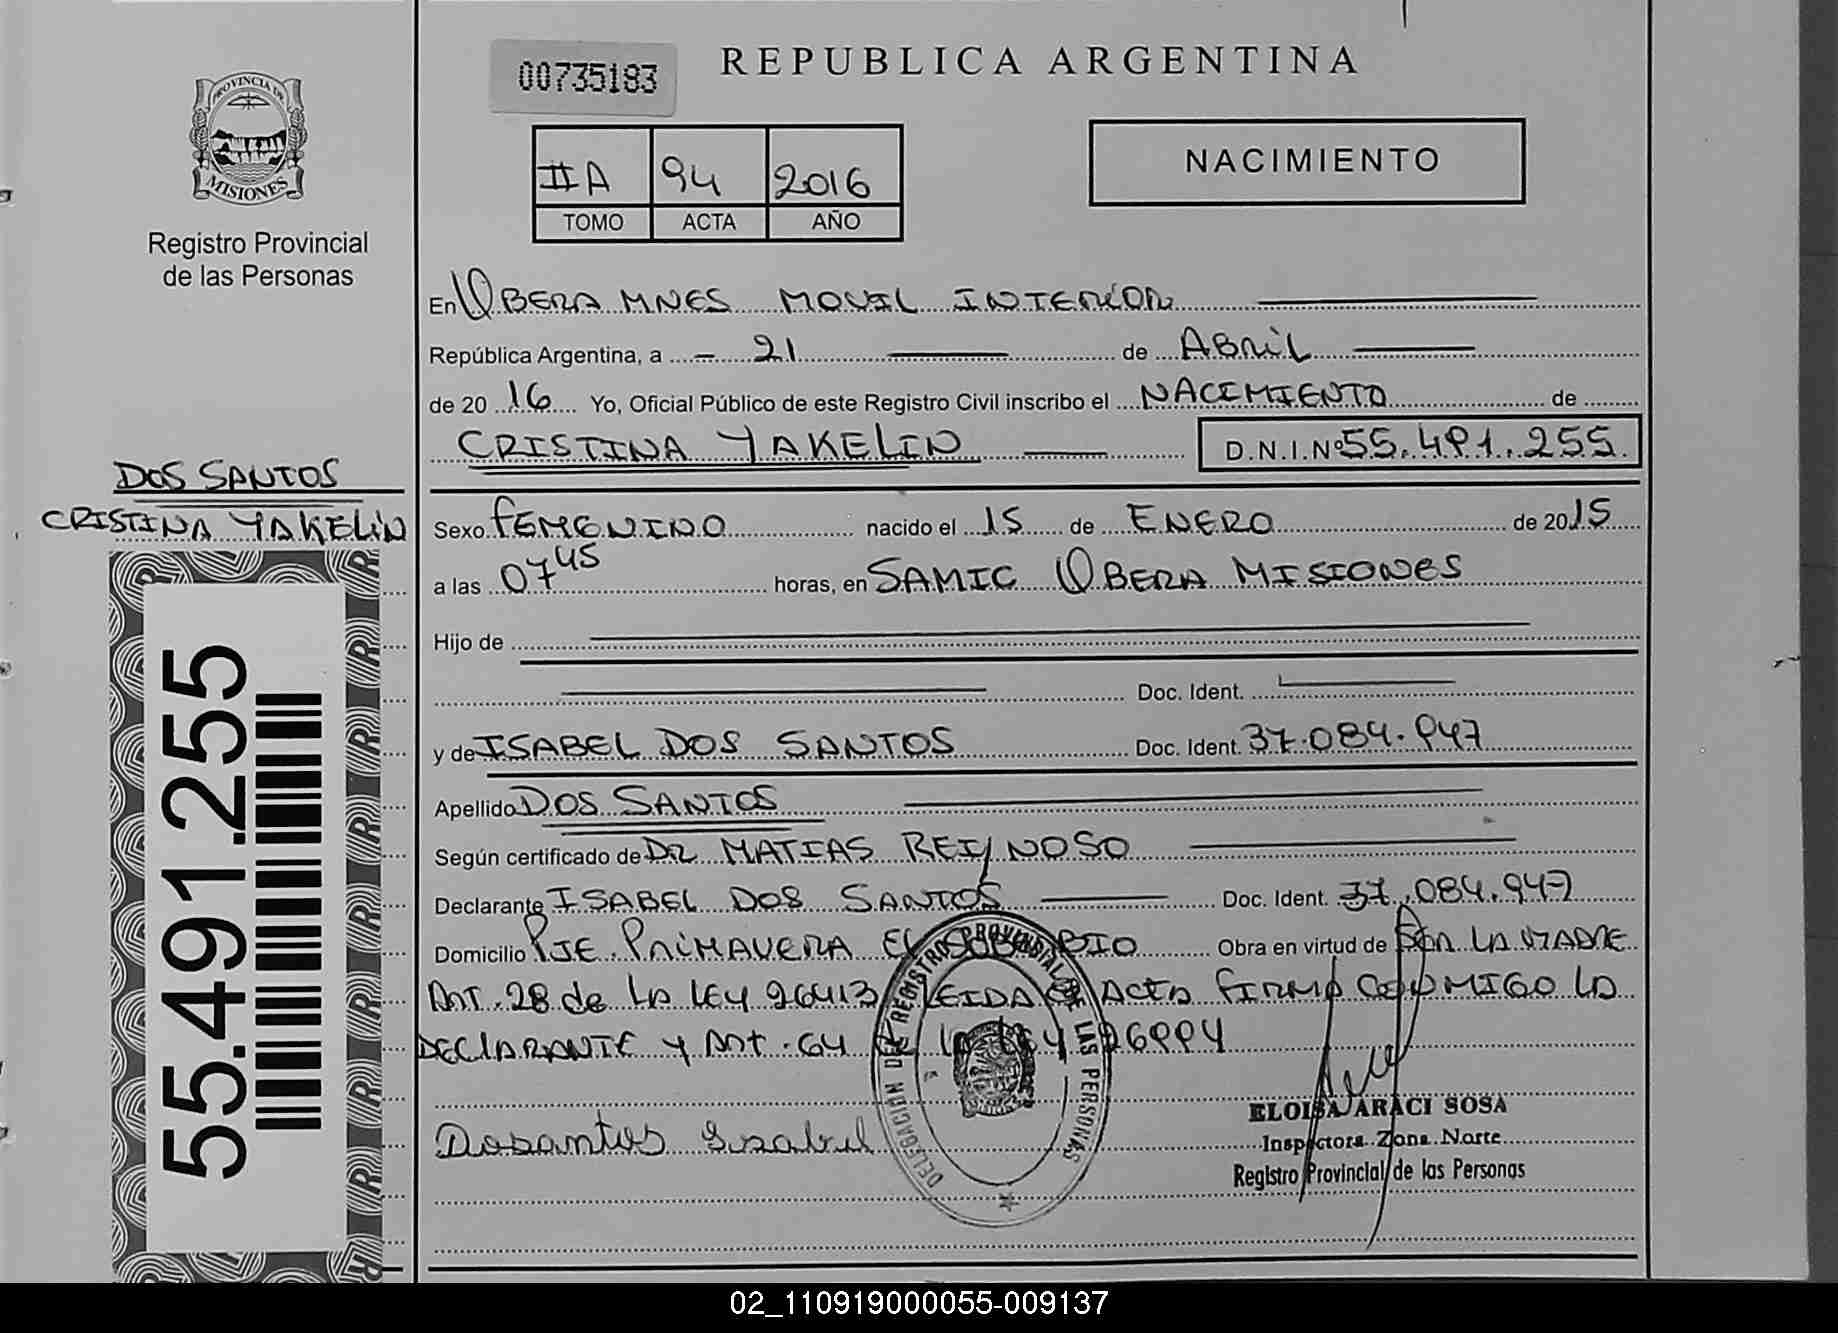 00735183
REPUBLICA ARGENTINA
PROVINCIA DE
MISIONES
Registro Provincial
de las Personas
IIA 94 2016
TOMO ACTA AÑO
NACIMIENTO
En OBERA MNES MOVIL INTERIOR
República Argentina, a 21 de ABRIL
de 20 16 Yo, Oficial Público de este Registro Civil inscribo el NACIMIENTO de
CRISTINA YAKELIN D.N.I.Nº 55.491.255
DOS SANTOS
CRISTINA YAKELIN
Sexo FEMENINO nacido el 15 de ENERO de 2015
a las 07 45 horas, en SAMIC OBERA MISIONES
Hijo de
Doc. Ident.
y de ISABEL DOS SANTOS Doc. Ident. 37.084.947
Apellido DOS SANTOS
Según certificado de DR MATIAS REYNOSO
Declarante ISABEL DOS SANTOS Doc. Ident. 37.084.947
Domicilio PJE. PRIMAVERA EL Obra en virtud de SER LA MADRE
ART. 28 de LA LEY 26413 LEIDA ACTA FIRMA CONMIGO LA
DECLARANTE Y ART. 64 de la LEY 26994
55.491.255
Dosantos Isabel
DELEGACION DEL REGISTRO PROVINCIAL DE LAS PERSONAS
ELOISA ARACI SOSA
Inspectora Zona Norte
Registro Provincial de las Personas
02_110919000055-009137